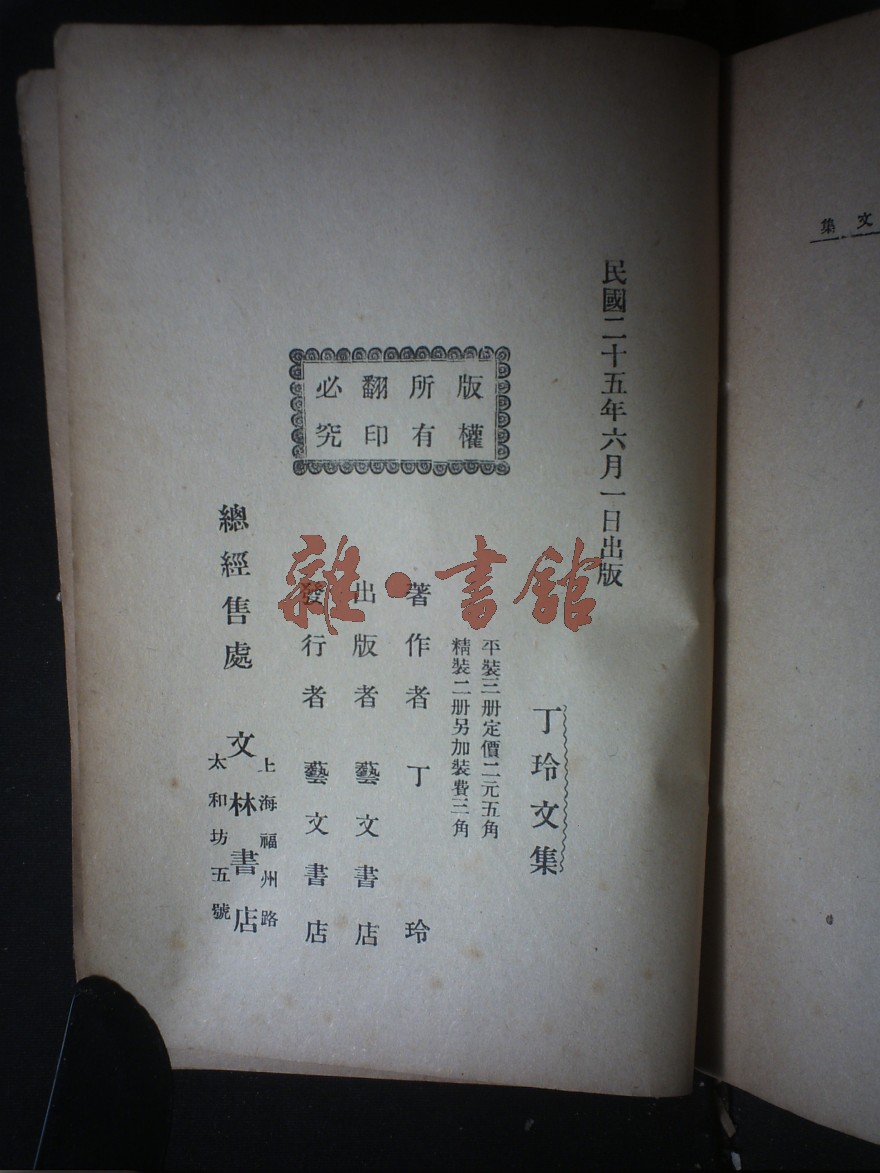 文集
民國二十五年六月一日出版
版權
所有
翻印
必究
丁玲文集
平裝三册定價二元五角
精裝二册另加裝費三角
著作者 丁玲
出版者 藝文書店
發行者 藝文書店
總經售處 文林書店
上海福州路
太和坊五號
雜·書館